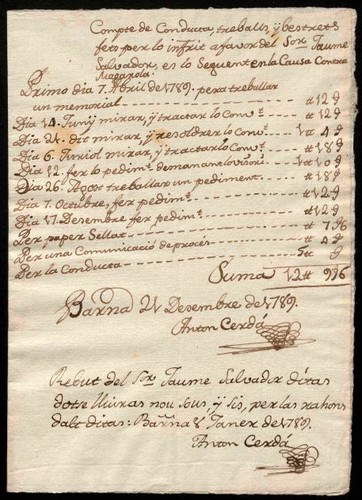 Compte de Conducta, treballs, y bestret
fets per lo infrit a favor del Sor Jaume
Salvador, es lo Seguent en la Causa Contra
Magarola.
Primo dia 7. Abril de 1789. pera treballar
un memorial 12 9
Dia 14. Juny mirar, y tractar lo Conv.t 12 9
Dia 21. dit mirar, y resoldrer lo Conv.t 1 4 9
Dia 6. Juriol mirar, y tractar lo Conv.t 18 9
Dia 12. fer lo pedim.t demanant lo visori 1 10 9
Dia 26. Agost treballar un pediment. 18 9
Dia 7. Octubre, fer pedim.t 12 9
Dia 17. Desembre fer pedim.t 12 9
Per paper Sellat 7 96
Per una Comunicació de procés 4 9
Per la Conducta 5 9
Suma 12 996
Barña 21 Desembre de 1789.
Anton Cerdá
Rebut del Sor Jaume Salvador ditas
dotse lliuras nou sous, y sis, per las rahons
dalt ditas: Barña 8 Janer de 1789.
Anton Cerdá